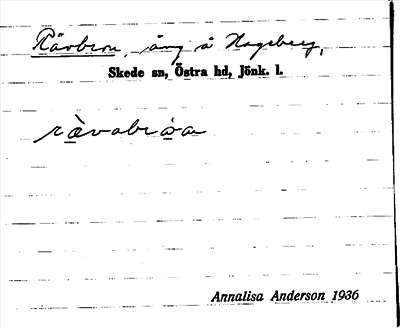 Rävbron, äng å Hagsberg,
Skede sn, Östra hd, Jönk. l.
rävabroa
Annalisa Anderson 1936